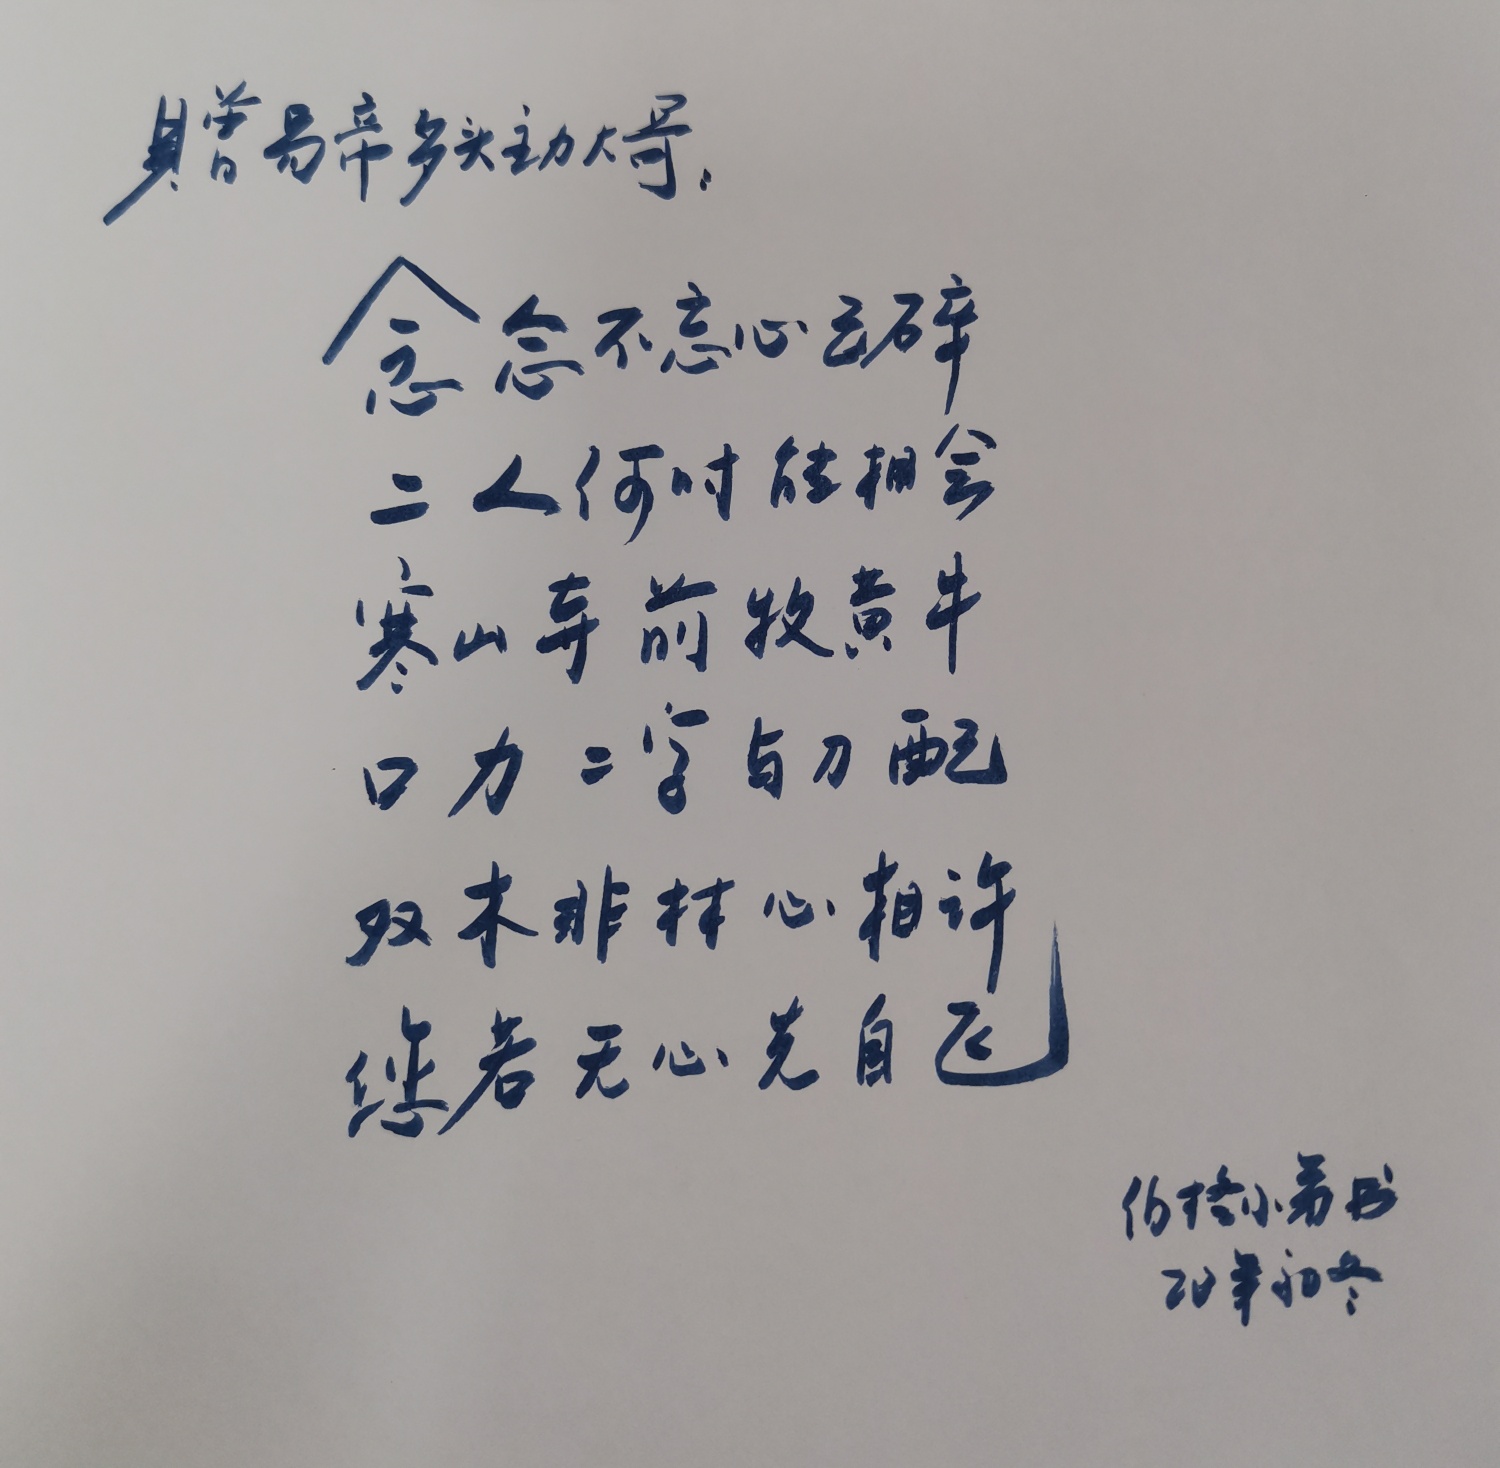 赠易帝多头主力大哥.
念念不忘心云碎
二人何时能相会
寒山寺前牧黄牛
口力二字与刀配
双木非林心相许
您若无心先自飞
伯格小弟书
20年初冬